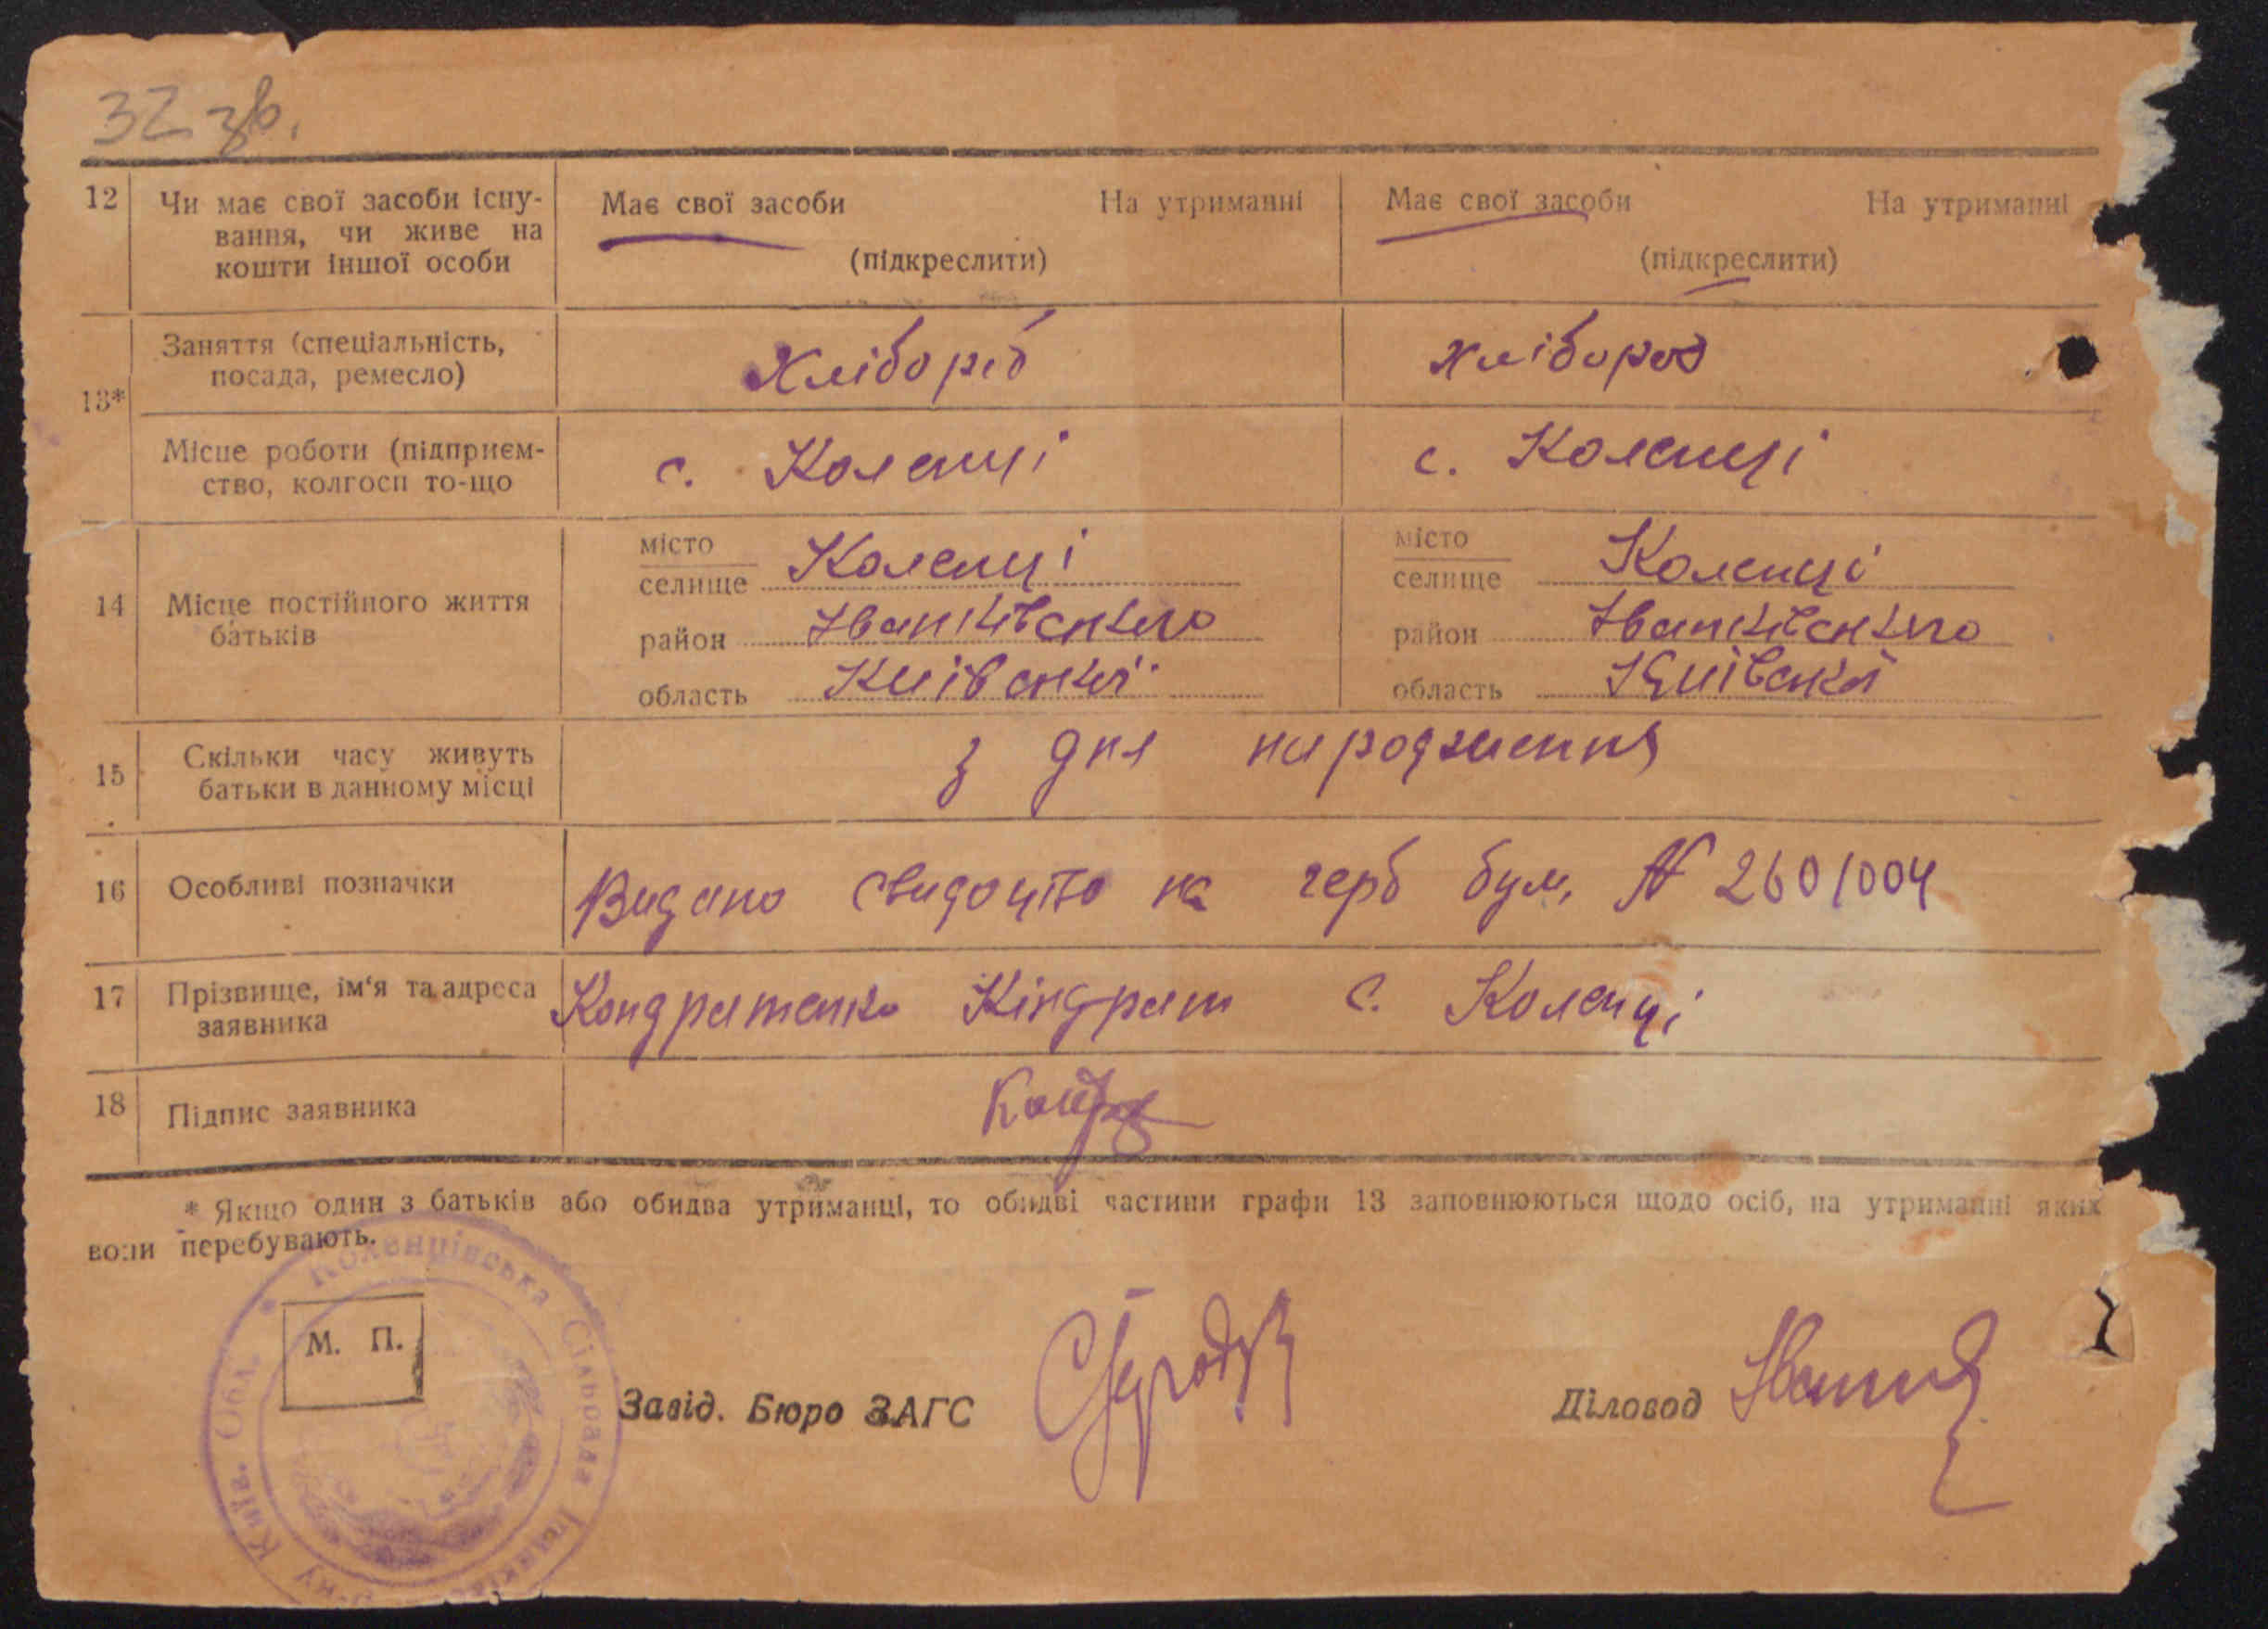 32 зв.
12 Чи має свої засоби існу- Має свої засоби На утриманні Має свої засоби На утриманні
вання, чи живе на
кошти іншої особи (підкреслити) (підкреслити)
13* Заняття (спеціальність, Хлібороб хлібороб
посада, ремесло)
Місце роботи (підприєм- с. Коленці с. Коленці
ство, колгосп то-що
14 Місце постійного життя батьків
місто
селище Коленці
район Іванківського
область Київської
місто
селище Коленці
район Іванківського
область Київської
15 Скільки часу живуть з дня народження
батьки в данному місці
16 Особливі позначки Видано свидоцтво на герб бум, № 2601004
17 Прізвище, ім'я та адреса Кондратенко Кіндрат с. Коленці
заявника
18 Підпис заявника
* Якщо один з батьків або обидва утриманці, то обидві частини графи 13 заповнюються щодо осіб, на утриманні яких
вони перебувають.
М. П.
Завід. Бюро ЗАГС
Діловод
Коленцівська Сільрада Іванківс. р-ну Київ. Обл. *